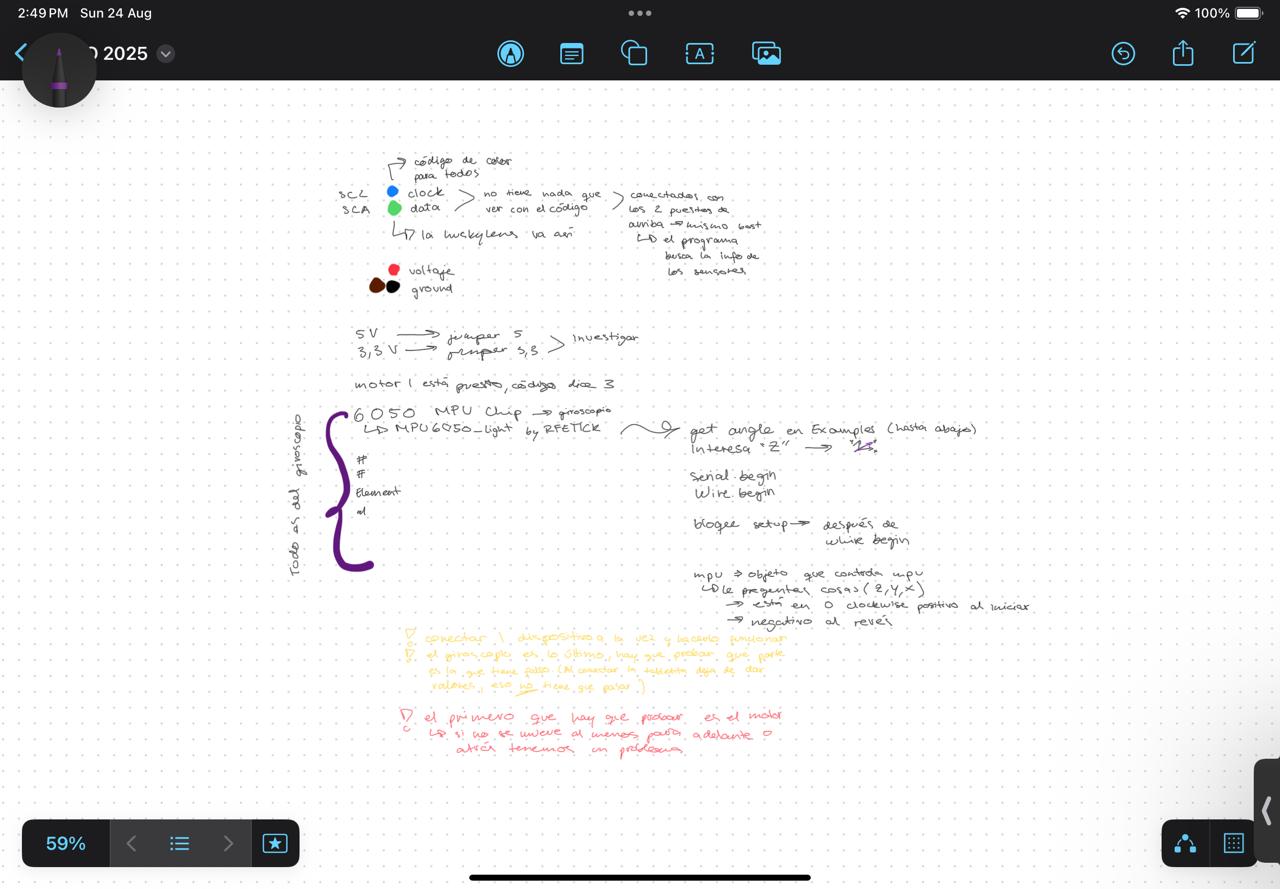 2:49 PM Sun 24 Aug
100%
2025
A
código de color
para todos
SCL clock
SCA data
no tiene nada que
ver con el código
conectados con
los 2 puertos de
arriba → mismo
↳ el programa
busca la info de
los sensores
↳ la huskylens va así
voltaje
ground
5V → jumper 5
3,3 V → jumper 3,3
Investigar
motor 1 está puesto, código dice 3
Todo es del giroscopio
6050 MPU Chip → giroscopio
↳ MPU6050_light by RFETICK
#
#
Element
al
get angle en Examples (hasta abajo)
Interesa "Z" →
Serial.begin
Wire.begin
setup → después de
whire begin
mpu → objeto que controla mpu
↳ le preguntas cosas (Z, Y, X)
→ está en 0 clockwise positivo al iniciar
→ negativo al revés
conectar 1 dispositivo a la vez y hacerlo funcionar
el giroscopio es lo último, hay que probar qué parte
es la que tiene fallo. (Al conectar la tabletita deja de dar
valores, eso no tiene que pasar)
el primero que hay que probar es el motor
↳ si no se mueve al menos para adelante o
atrás tenemos un problema
59%